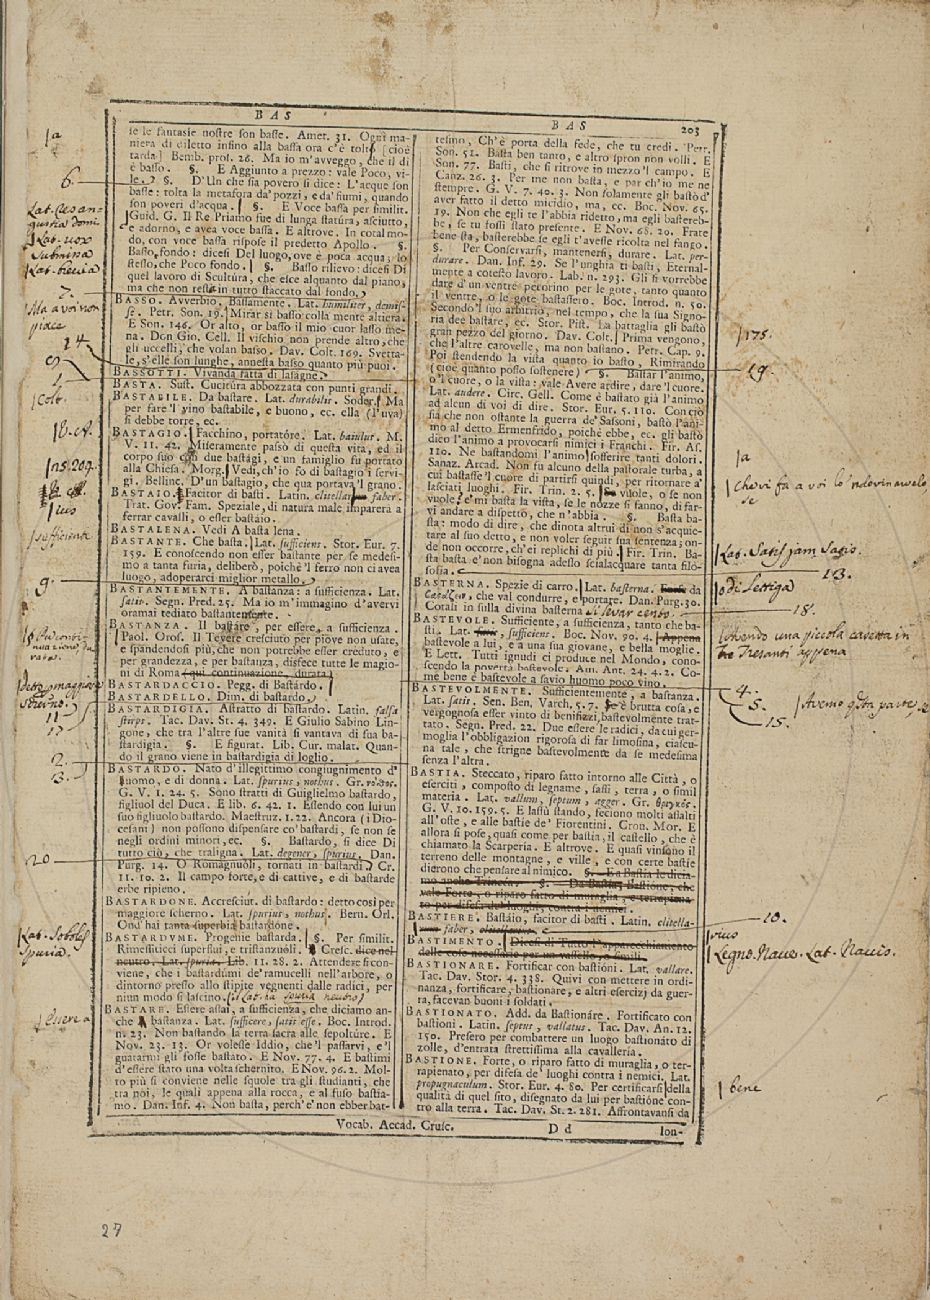 BAS
BAS 203
ie le fantasie nostre son basse. Amet. 31. Ogni ma-
niera di diletto infino alla bassa ora c'è tolto [cioè
tarda] Bemb. pros. 26. Ma io m'avveggo, che il dì
è basso. §. E Aggiunto a prezzo: vale Poco, vi-
le. §. D'Un che sia povero si dice: L'acque son
basse: tolta la metafora da' pozzi, e da' fiumi, quando
son poveri d'acqua. §. E Voce bassa per similit.
Guid. G. Il Re Priamo fue di lunga statura, asciutto,
e adorno, e avea voce bassa. E altrove. In cotal mo-
do, con voce bassa rispose il predetto Apollo. §.
Basso, fondo: dicesi Del luogo, ove è poca acqua; lo
stesso, che Poco fondo. §. Basso rilievo: dicesi Di
quel lavoro di Scultura, che esce alquanto dal piano,
ma che non resti in tutto staccato dal fondo.
BASSO. Avverbio, Bassamente. Lat. humiliter, demis-
sè. Petr. Son. 19. Mirar sì basso colla mente altiera.
E Son. 146. Or alto, or basso il mio cuor lasso me-
na. Don Gio. Cell. Il vischio non prende altro, che
gli uccelli, che volan basso. Dav. Colt. 169. Svetta-
le, s'elle son lunghe, annesta basso quanto più puoi.
BASSOTTI. Vivanda fatta di lasagne.
BASTA. Sust. Cucitura abbozzata con punti grandi.
BASTABILE. Da bastare. Lat. durabilis. Soder. Ma
per fare'l vino bastabile, e buono, ec. ella (l'uva)
si debbe torre, ec.
BASTAGIO. Facchino, portatóre. Lat. baiulus. M.
V. 11. 42. Miseramente passò di questa vita, ed il
corpo suo due bastági, e un famiglio fu portato
alla Chiesa. Morg. Vedi, ch'io fo di bastagio i servi-
gi. Bellinc. D'un bastagio, che qua portava'l grano.
BASTAIO. Facitor di basti. Latin. clitellar faber.
Trat. Gov. Fam. Speziale, di natura male imparerà a
ferrar cavalli, o esser bastáio.
BASTALENA. Vedi A basta lena.
BASTANTE. Che basta. Lat. sufficiens. Stor. Eur. 7.
159. E conoscendo non esser bastante per se medesi-
mo a tanta furia, deliberò, poiché'l ferro non ci avea
luogo, adoperarci miglior metallo.
BASTANTEMENTE. A bastanza: a sufficienza. Lat.
satis. Segn. Pred. 25. Ma io m'immagino d'avervi
oramai tediato bastantemente.
BASTANZA. Il bastáre, per essere, a sufficienza.
Paol. Oros. Il Tevere cresciuto per piove non usate,
e spandendosi più, che non potrebbe esser creduto, e
per grandezza, e per bastanza, disfece tutte le magio-
ni di Roma (qui continuazione, durata)
BASTARDACCIO. Pegg. di Bastárdo.
BASTARDELLO. Dim. di bastardo.
BASTARDIGIA. Astratto di bastardo. Latin. falsa
stirps. Tac. Dav. St. 4. 349. E Giulio Sabino Lin-
gone, che tra l'altre sue vanità si vantava di sua ba-
stardigia. §. E figurat. Lib. Cur. malat. Quan-
do il grano viene in bastardigia di loglio.
BASTARDO. Nato d'illegittimo congiugnimento d'
uomo, e di donna. Lat. spurius, nothus. Gr. νόθος.
G. V. 1. 24. 5. Sono stratti di Guiglielmo bastardo,
figliuol del Duca. E lib. 6. 42. 1. Essendo con lui un
suo figliuolo bastardo. Maestruz. 1. 22. Ancora (i Dio-
cesani) non possono dispensare co' bastardi, se non se
negli ordini minori, ec. §. Bastardo, si dice Di
tutto ciò, che traligna. Lat. degener, spurius. Dan.
Purg. 14. O Romagnuoli, tornati in bastardi. Cr.
11. 10. 2. Il campo forte, e di cattive, e di bastarde
erbe ripieno.
BASTARDONE. Accresciut. di bastardo: detto così per
maggiore scherno. Lat. spurius, nothus. Bern. Orl.
Ond' hai tanta superbia bastardone.
BASTARDUME. Progenie bastarda. §. Per similit.
Rimessiticci superflui, e tristanzuoli. Cresc. dice nel
neutro. Lat. spuria. Lib. 11. 28. 2. Attendere si con-
viene, che i bastardumi de' ramucelli nell'arbore, o
dintorno presso allo stipite vegnenti dalle radici, per
niun modo si lascino.
BASTARE. Essere assai, a sufficienza, che diciamo an-
che bastanza. Lat. sufficere, satis esse. Boc. Introd.
n. 23. Non bastando la terra sacra alle sepolture. E
Nov. 23. 13. Or volesse Iddio, che'l passarvi, e'l
guatarmi gli fosse bastato. E Nov. 77. 4. E bastimi
d'essere stato una volta schernito. E Nov. 96. 2. Mol-
to più si conviene nelle squole tra gli studianti, che
tra noi, le quali appena alla rocca, e al fuso bastia-
mo. Dan. Inf. 4. Non basta, perch'e' non ebber bat-
tesimo, Ch'è porta della fede, che tu credi. Petr.
Son. 51. Basta ben tanto, e altro spron non volli. E
Son. 77. Basti, che si ritrove in mezzo'l campo. E
Canz. 26. 3. Per me non basta, e par ch'io me ne
stempre. G. V. 7. 40. 3. Non solamente gli bastò d'
aver fatto il detto micidio, ma, ec. Boc. Nov. 65.
19. Non che egli te l'abbia ridetto, ma egli basterebbe,
be, se tu fossi stato presente. E Nov. 68. 20. Frate
bene sta, basterebbe se egli t'avesse ricolta nel fango.
§. Per Conservarsi, mantenersi, durare. Lat. per-
durare. Dan. Inf. 29. Se l'unghia ti basti, Eternal-
mente a cotesto lavoro. Lab. n. 293. Gli si vorrebbe
dare d'un ventre pecorino per le gote, tanto quanto
il ventre, o le gote bastassero. Boc. Introd. n. 50.
Secondo'l suo arbitrio, nel tempo, che la sua Signo-
ria dee bastare, ec. Stor. Pist. La battaglia gli bastò
gran pezzo del giorno. Dav. Colt. Prima vengono,
che l'altre carovelle, ma non bastano. Petr. Cap. 9.
Poi stendendo la vista quanto io basto, Rimirando
(cioè quanto posso sostenere) §. Bastar l'animo,
o'l cuore, o la vista: vale Avere ardire, dare'l cuore.
Lat. audere. Circ. Gell. Come è bastato già l'animo
ad alcun di voi di dire. Stor. Eur. 5. 110. Con ciò
sia che non ostante la guerra de' Sassoni, bastò l'ani-
mo al detto Ermenfrido, poiché ebbe, ec. gli bastò
dico l'animo a provocarsi nimici i Franchi. Fir. As.
110. Ne bastandomi l'animo sofferire tanti dolori.
Sanaz. Arcad. Non fu alcuno della pastorale turba, a
cui bastasse'l cuore di partirsi quindi, per ritornare a'
lasciati luoghi. Fir. Trin. 2. 5. Se vuole, o se non
vuole: e' mi basta la vista, se le nozze si fanno, di far-
vi andare a dispetto, che n'abbia. §. Basta ba-
sta: modo di dire, che dinota altrui di non s'acquie-
tare al suo detto, e non voler seguir sua sentenza; on-
de non occorre, ch'ei replichi di più. Fir. Trin. Ba-
sta basta e' non bisogna adesso scialacquare tanta filo-
sofia.
BASTERNA. Spezie di carro. Lat. basterna. da
che val condurre, e portare. Dan. Purg. 30.
Cotali in sulla divina basterna Si levar cento
BASTEVOLE. Sufficiente, a sufficienza, tanto che ba-
sti. Lat. sufficiens. Boc. Nov. 90. 4. Appena
bastevole a lui, e a una sua giovane, e bella moglie.
E Lett. Tutti ignudi ci produce nel Mondo, cono-
scendo la povertà bastevole. Am. Ant. 24. 4. 2. Co-
me bene è bastevole a savio huomo poco vino.
BASTEVOLMENTE. Sufficientemente, a bastanza.
Lat. satis. Sen. Ben. Varch. 5. 7. è brutta cosa, e
vergognosa esser vinto di benifizzi, bastevolmente trat-
tato. Segn. Pred. 22. Due essere le radici, da cui ger-
moglia l'obbligazion rigorosa di far limosina, ciascu-
na tale, che strigne bastevolmente da se medesima
senza l'altra.
BASTIA. Steccato, riparo fatto intorno alle Città, o
eserciti, composto di legname, sassi, terra, o simil
materia. Lat. vallum, septum, agger. Gr. θριγκός.
G. V. 10. 159. 5. E lassù stando, feciono molti assalti
all'oste, e alle bastíe de' Fiorentini. Cron. Mor. E
allora si pose, quasi come per bastia, il castello, che è
chiamato la Scarperia. E altrove. E quasi vinsono il
terreno delle montagne, e ville, e con certe bastíe
dierono che pensare al nimico. §. E a Bastia le dicia-
mo anche Trincea. §. Da Bastia, Bastione, che
vale Forte, o riparo fatto di muraglia, e terrapiena-
to per difesa de' luoghi, contra i nemici.
BASTIERE. Bastáio, facitor di basti. Latin. clitella-
faber,
BASTIMENTO. Dicesi di Tutto l'apparecchiamento
delle cose necessarie per un vassello, o simili.
BASTIONARE. Fortificar con bastióni. Lat. vallare.
Tac. Dav. Stor. 4. 338. Quivi con mettere in ordi-
nanza, fortificare, bastionare, e altri esercizj da guer-
ra, facevan buoni i soldati.
BASTIONATO. Add. da Bastionáre. Fortificato con
bastioni. Latin. septus, vallatus. Tac. Dav. An. 12.
150. Presero per combattere un luogo bastionáto di
zolle, d'entrata strettissima alla cavalleria.
BASTIONE. Forte, o riparo fatto di muraglia, o ter-
rapienato, per difesa de' luoghi contra i nemici. Lat.
propugnaculum. Stor. Eur. 4. 80. Per certificarsi della
qualità di quel sito, disegnato da lui per bastióne con-
tro alla terra. Tac. Dav. St. 2. 281. Affrontavansi da
Vocab. Accad. Crusc. D d Ion-
a
6.
Lat. vox
Submissa
7.
Ma a voi non
piace
14
Colt.
sufficiente
9.
11
2.
3.
20
Lat. Soboles
Spuria.
175.
19.
a
Lat. Satis jam Satis.
13.
di Lettiga
18.
avendo una piccola casetta in
Tresanti appena
4.
5.
15.
10.
rius
Legno. Naves. Lat. Navis.
bene
27